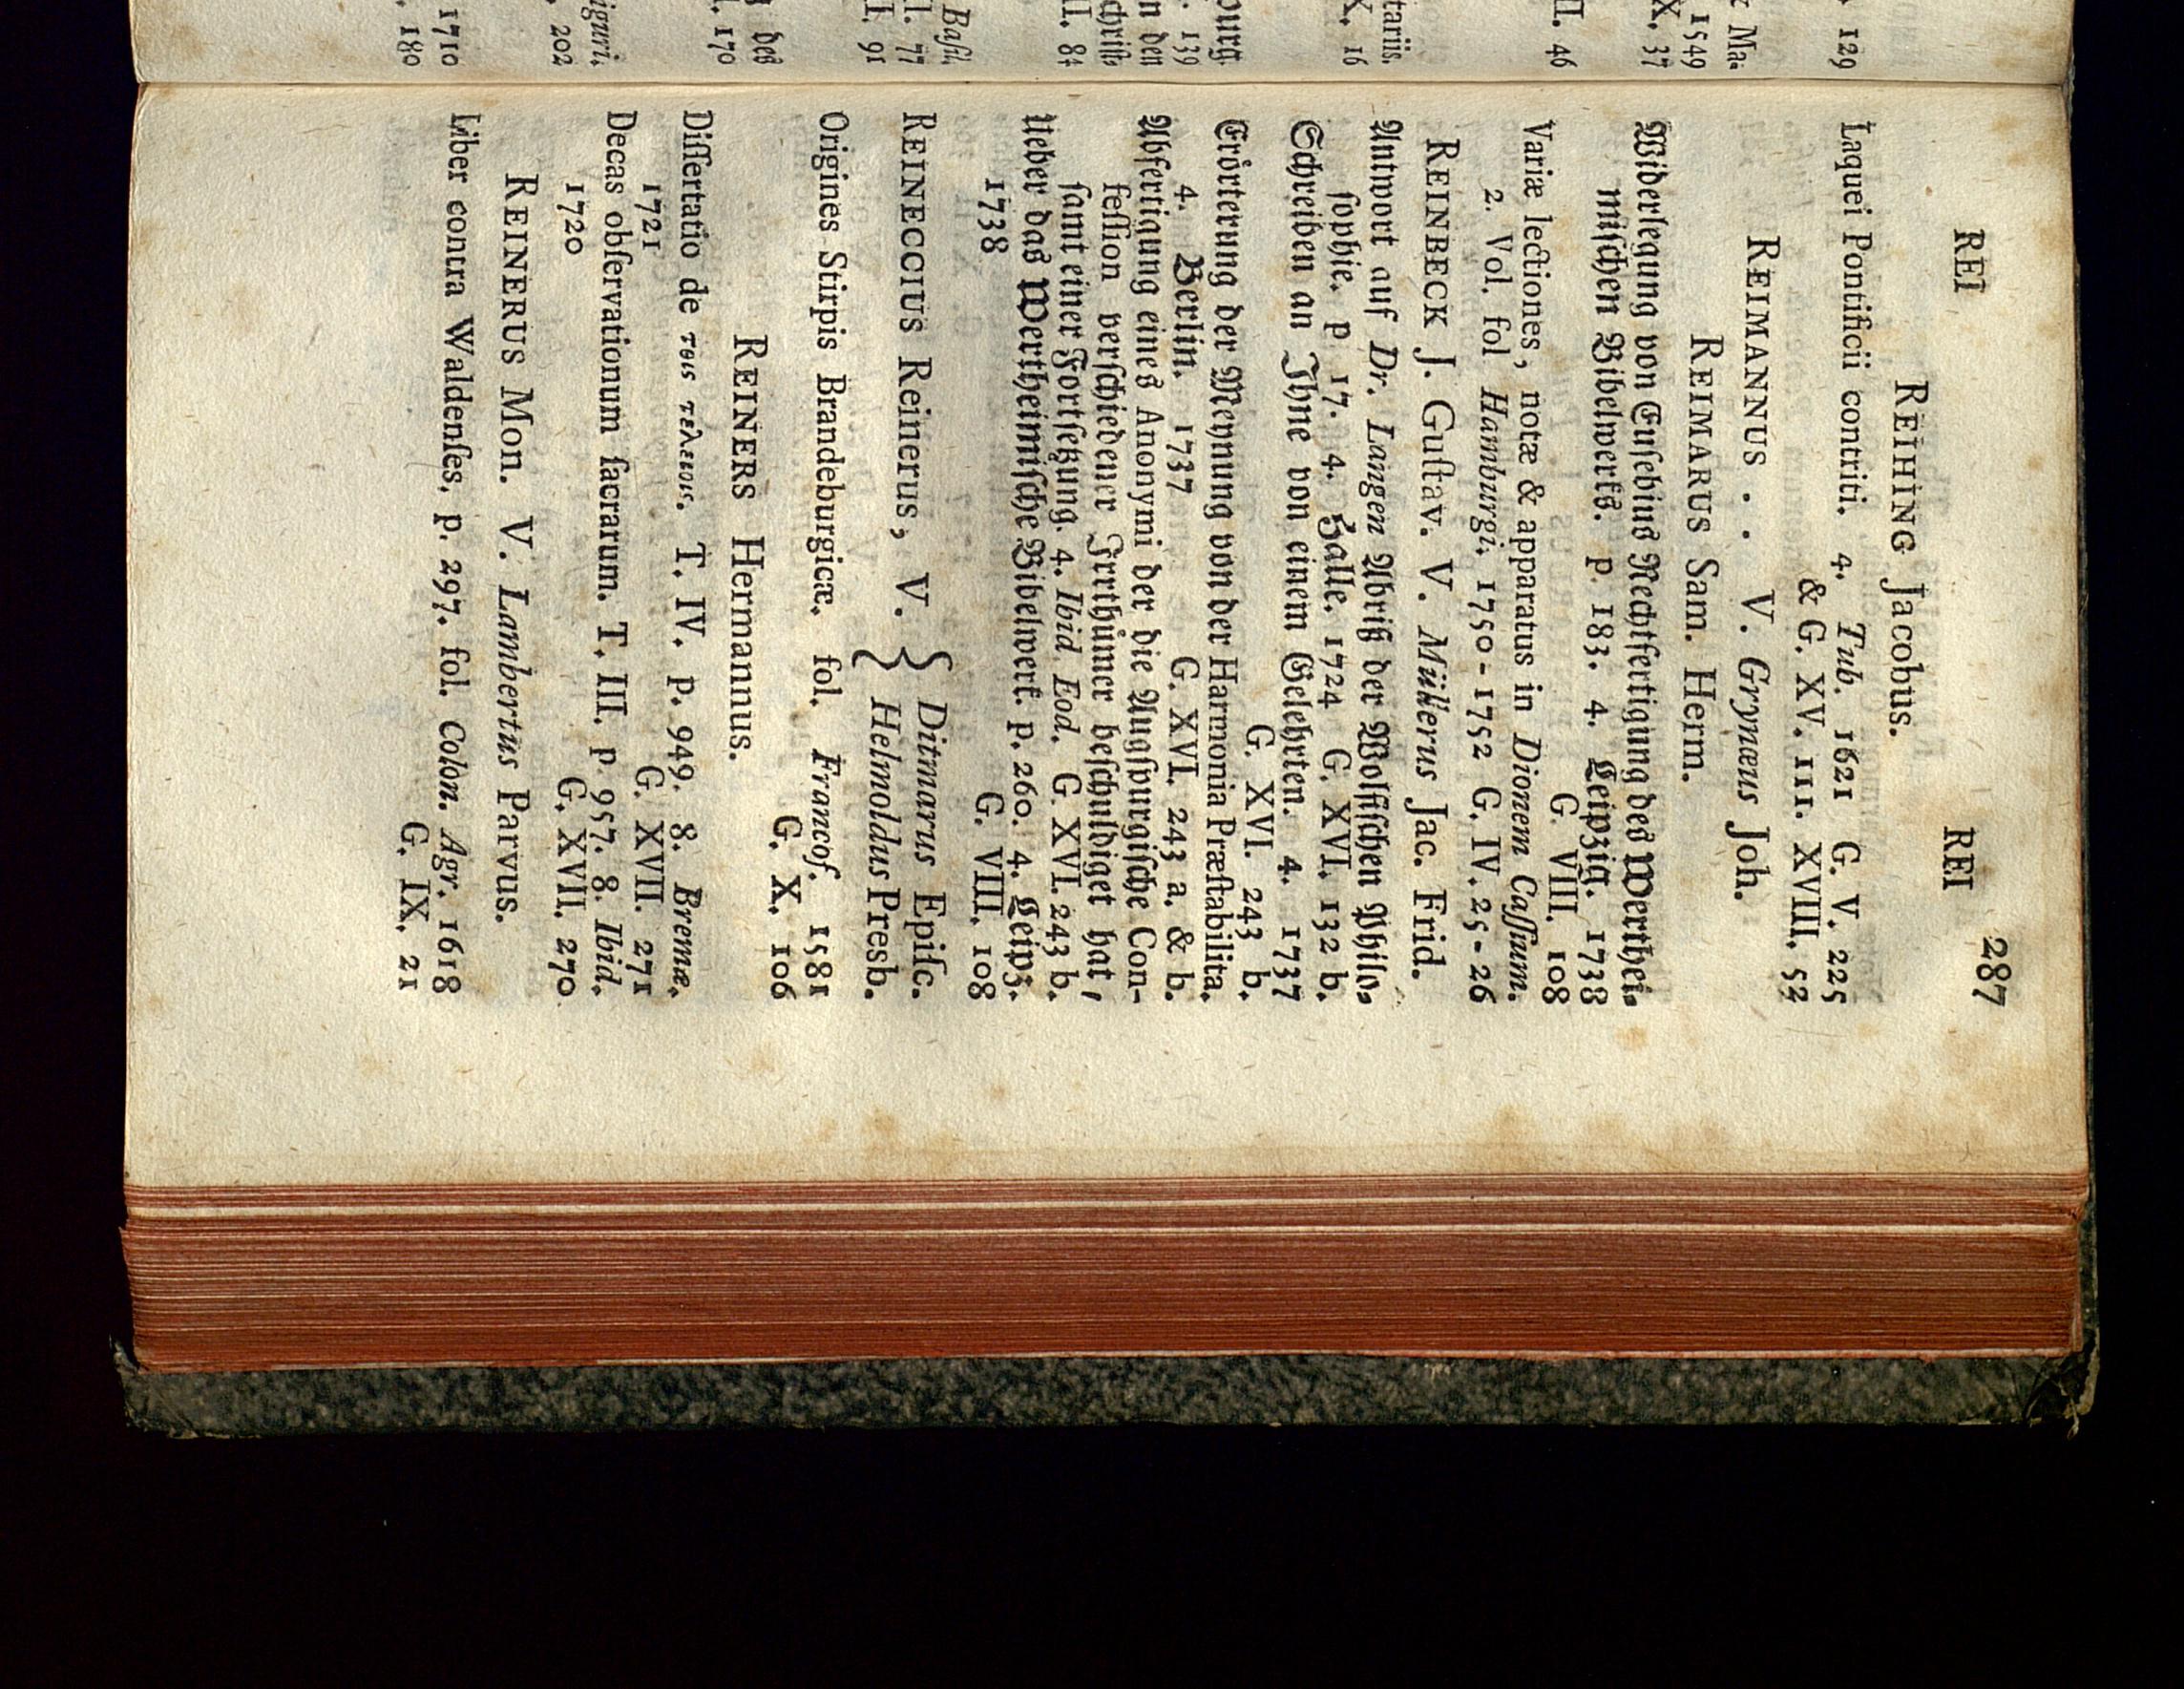 REI REI 287
REIHING Jacobus.
Laquei Pontificii contriti. 4. Tub. 1621 G. V. 225
& G. XV. 111. XVIII. 52
REIMANNUS . . V. Grynæus Joh.
REIMARUS Sam. Herm.
Widerlegung von Eusebius Rechtfertigung des Werthei-
mischen Bibelwerks. p. 183. 4. Leipzig. 1738
G. VIII. 108
Variæ lectiones, notæ & apparatus in Dionem Caſſium.
2. Vol. fol Hamburgi, 1750-1752 G. IV. 25-26
REINBECK J. Guſtav. V. Müllerus Jac. Frid.
Antwort auf Dr. Langen Abriß der Wolfischen Philo-
sophie. p 17. 4. Halle. 1724 G. XVI. 132 b.
Schreiben an Ihne von einem Gelehrten. 4. 1737
G. XVI. 243 b.
Erörterung der Meynung von der Harmonia Præſtabilita.
4. Berlin. 1737 G. XVI. 243 a. & b.
Abfertigung eines Anonymi der die Augspurgische Con-
fession verschiedener Irrthümer beschuldiget hat,
samt einer Fortsetzung. 4. Ibid Eod. G. XVI. 243 b.
Ueber das Wertheimische Bibelwerk. p. 260. 4. Leipz.
1738 G. VIII. 108
REINECCIUS Reinerus, V. { Ditmarus Epiſc.
Helmoldus Presb.
Origines Stirpis Brandeburgicæ. fol. Francof. 1581
G. X. 106
REINERS Hermannus.
Diſſertatio de τοις τελειοις. T. IV. p. 949. 8. Bremæ.
1721 G. XVII. 271
Decas obſervationum ſacrarum. T. III. p 957. 8. Ibid.
1720 G. XVII. 270
REINERUS Mon. V. Lambertus Parvus.
Liber contra Waldenſes. p. 297. fol. Colon. Agr. 1618
G. IX. 21